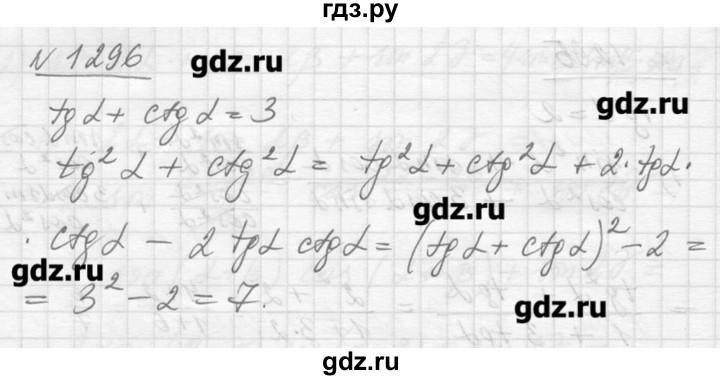 гдз.ру
N 1296
gdz.ru
tgα + ctgα = 3
gdz.ru
tg²α + ctg²α = tg²α + ctg²α + 2·tgα·
gdz.ru
·ctgα − 2 tgα ctgα = (tgα + ctgα)² − 2 =
gdz.ru
= 3² − 2 = 7.
gdz.ru
gdz.ru